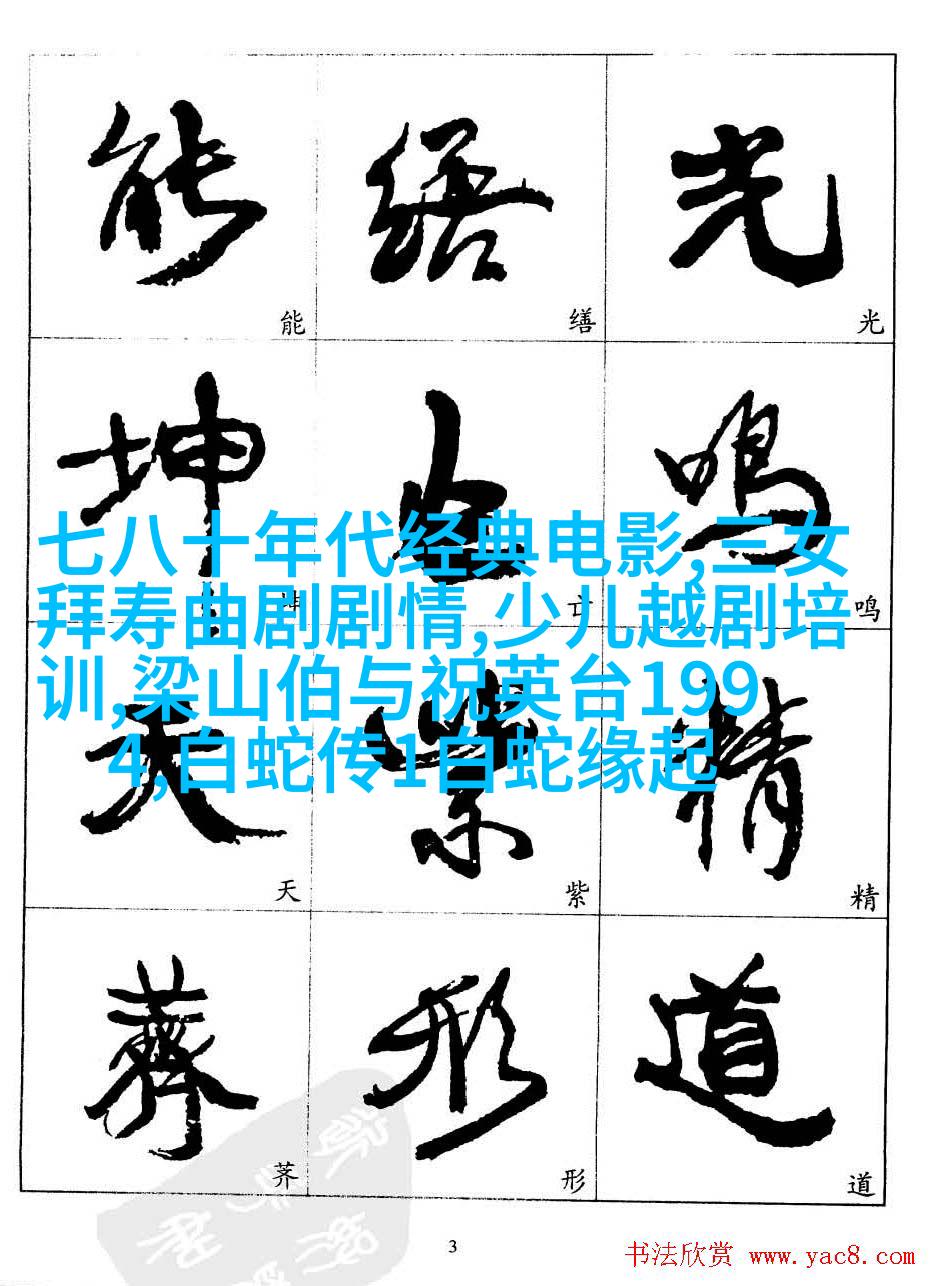 能 繕 光
能 缮 光
坤 亡 鳴
坤 亡 鸣
七八十年代经典电影,三女
拜寿曲剧剧情,少儿越剧培
训,梁山伯与祝英台199
4,白蛇传1白蛇缘起
天 紫 精
天 紫 精
薺 形 道
荠 形 道
3
书法欣赏 www.yac8.com